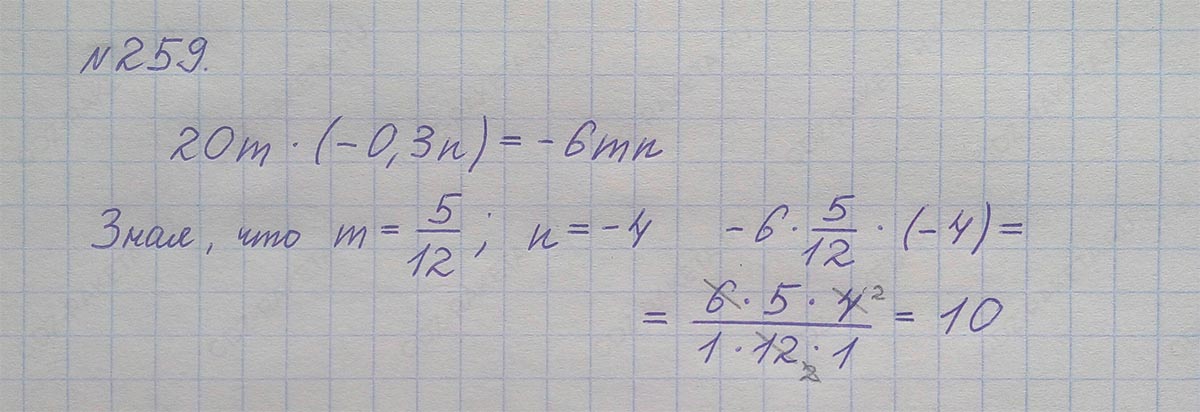 №259.
20m · (-0,3n) = -6mn
Зная, что m = 5/12; n = -4 -6 · 5/12 · (-4) =
= 6 · 5 · 4 2 / 1 · 12 2 · 1 = 10